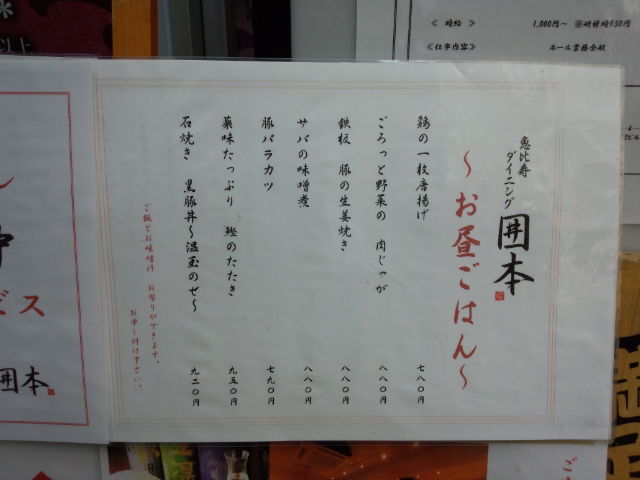 恵比寿
ダイニング
囲本
～お昼ごはん～
鶏の一枚唐揚げ 七八〇円
ごろっと野菜の 肉じゃが 八八〇円
鉄板 豚の生姜焼き 八八〇円
サバの味噌煮 八八〇円
豚バラカツ 七九〇円
薬味たっぷり 鰹のたたき 九五〇円
石焼き 黒豚丼～温玉のせ～ 九二〇円
ご飯とお味噌汁 お替りができます。
お申し付け下さい。
≪ 時給 ≫ 1,000円～ ※研修時950円
≪仕事内容≫ ホール業務全般
以上
ビス
囲本